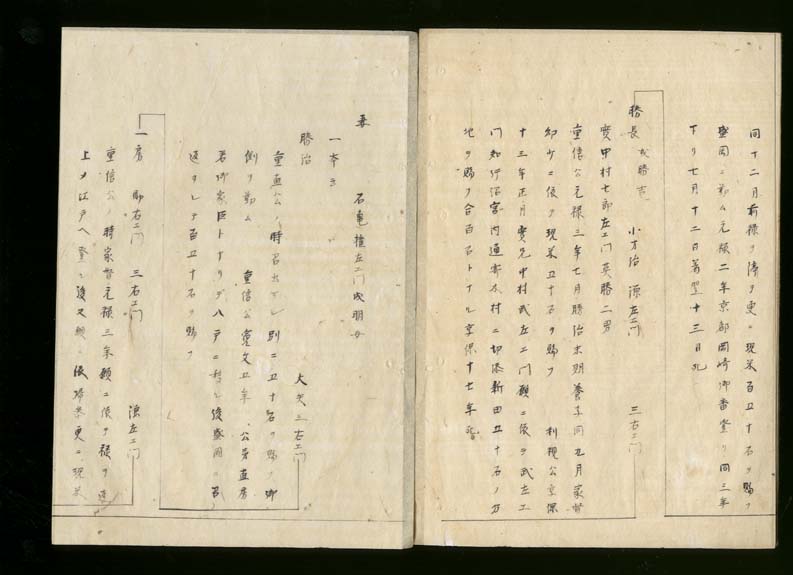 同十二月前禄ヲ済ヲ更ニ現米百五十石ヲ賜フ
盛岡ニ勤ム元禄二年京都岡崎御番登リ同三年
下リ七月十二日着翌十三日死
勝長 或勝吉 小才治 源左エ門 三右エ門
実中村七郎左エ門英勝二男
重信公元禄三年七月勝治末期養子同九月家督
幼少ニ依テ現米五十石ヲ賜フ 利視公享保
十三年正月実兄中村武左エ門願ニ依テ武左エ
門知行沼宮内通寄木村ニ切添新田五十石ノ刀
地ヲ賜フ合百石トナル享保十七年死
妻 石亀権左エ門成明女
一本ニ
勝治 大矢三右エ門
重直公ノ時召出サレ別ニ五十石ヲ賜フ御
側リ勤ム 重信公寛文五年 公弟直房
君御家臣トナリテ八戸ニ移ル後盛岡ニ召
返サレテ百五十石ヲ賜フ
一房 助右エ門 三右エ門 源左エ門
重信公ノ時家督元禄三年願ニ依テ禄ヲ返
上メ江戸ヘ登ル後又願ニ依帰参更ニ現米